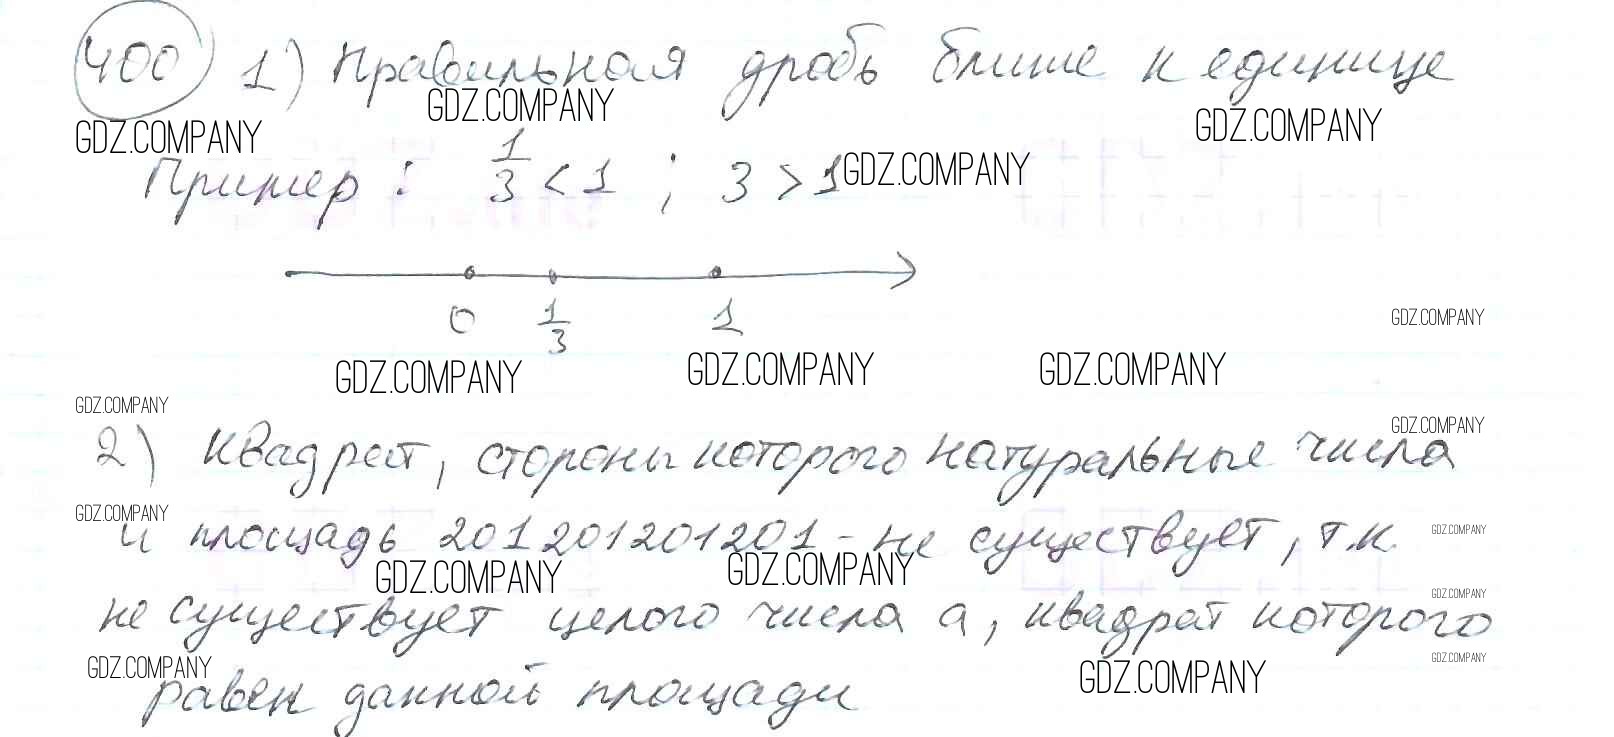 400 1) Правильная дробь ближе к единице
GDZ.COMPANY
GDZ.COMPANY GDZ.COMPANY
Пример: 1/3 < 1 ; 3 > 1 GDZ.COMPANY
0 1/3 1
GDZ.COMPANY
GDZ.COMPANY GDZ.COMPANY GDZ.COMPANY
GDZ.COMPANY
GDZ.COMPANY
2) Квадрат, стороны которого натуральные числа
GDZ.COMPANY
и площадь 201201201201 - не существует, т.к.
GDZ.COMPANY
GDZ.COMPANY GDZ.COMPANY
GDZ.COMPANY
не существует целого числа а, квадрат которого
GDZ.COMPANY GDZ.COMPANY
GDZ.COMPANY
равен данной площади